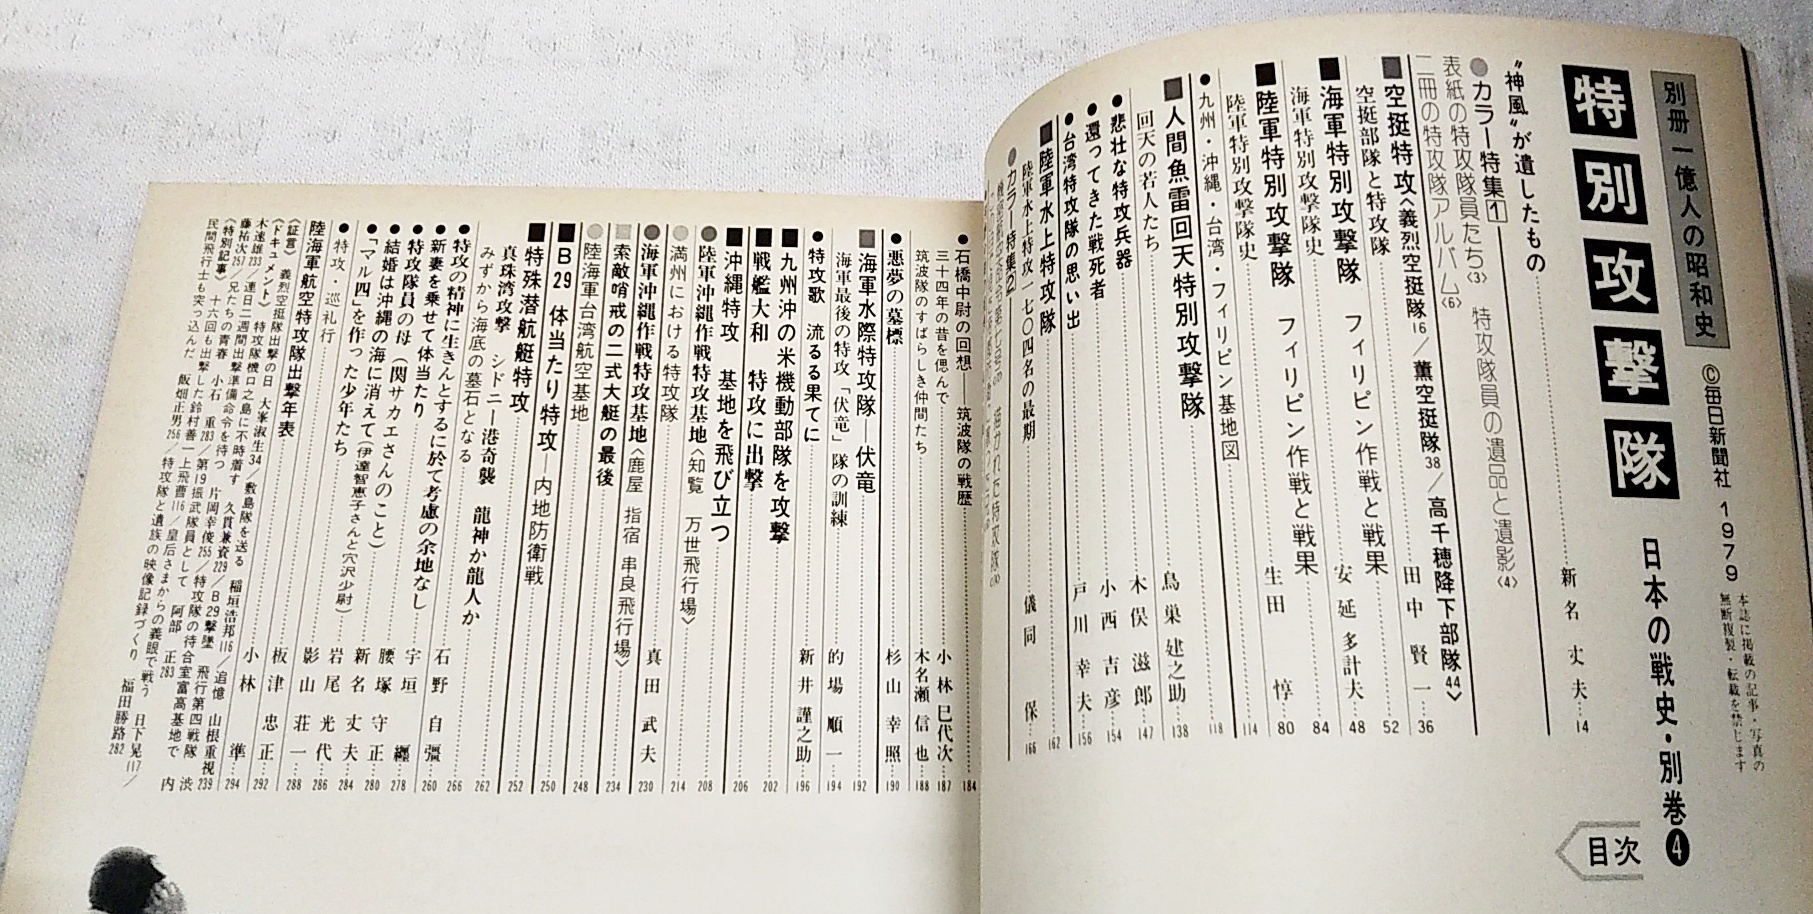 別冊一億人の昭和史
©毎日新聞社 1979
本誌に掲載の記事・写真の
無断複製・転載を禁じます
特別攻撃隊
日本の戦史・別巻4
目次
“神風”が遺したもの 新名丈夫 14
●カラー特集1
表紙の特攻隊員たち〈3〉 特攻隊員の遺品と遺影〈4〉
二冊の特攻隊アルバム〈6〉
■空挺特攻〈義烈空挺隊16/薫空挺隊38/高千穂降下部隊44〉
空挺部隊と特攻隊 田中賢一 36
■海軍特別攻撃隊 フィリピン作戦と戦果 52
海軍特別攻撃隊史 安延多計夫 48
■陸軍特別攻撃隊 フィリピン作戦と戦果 84
陸軍特別攻撃隊史 生田惇 80
●九州・沖縄・台湾・フィリピン基地図 114
■人間魚雷回天特別攻撃隊 118
回天の若人たち 鳥巣建之助 138
●悲壮な特攻兵器 木俣滋郎 147
●還ってきた戦死者 小西吉彦 154
●台湾特攻隊の思い出 戸川幸夫 156
■陸軍水上特攻隊 162
陸軍水上特攻一七〇四名の最期 儀同保 166
●カラー特集2
●石橋中尉の回想――筑波隊の戦歴 184
三十四年の昔を偲んで 小林巳代次 187
筑波隊のすばらしき仲間たち 木名瀬信也 188
●悪夢の墓標 杉山幸照 190
■海軍水際特攻隊―伏竜 192
海軍最後の特攻「伏竜」隊の訓練 的場順一 194
●特攻歌 流るる果てに 新井謹之助 196
■九州沖の米機動部隊を攻撃
■戦艦大和 特攻に出撃 202
■沖縄特攻 基地を飛び立つ 206
●陸軍沖縄作戦特攻基地〈知覧 万世飛行場〉 208
●満州における特攻隊 214
●海軍沖縄作戦特攻基地〈鹿屋 指宿 串良飛行場〉
■索敵哨戒の二式大艇の最後 真田武夫 230
●陸海軍台湾航空基地 234
■B29 体当たり特攻―内地防衛戦 248
■特殊潜航艇特攻 250
真珠湾攻撃 シドニー港奇襲 龍神か龍人か 252
みずから海底の墓石となる 262
●特攻の精神に生きんとするに於て考慮の余地なし 266
●新妻を乗せて体当たり 石野自彊 260
●特攻隊員の母(関サカエさんのこと) 宇垣纏 278
●結婚は沖縄の海に消えて(伊達智恵子さんと穴沢少尉) 腰塚守正 280
●「マル四」を作った少年たち 新名丈夫 284
●特攻・巡礼行 岩尾光代 286
陸海軍航空特攻隊出撃年表 影山荘一 288
〈証言〉 義烈空挺隊出撃の日 大峯淑生34/敷島隊を送る 稲垣浩邦116/追憶 山根重視239
〈ドキュメント〉 特攻隊機口之島に不時着す 久貫兼資229/B29撃墜 飛行第四戦隊
木速雄233/連日二週間出撃準備命令を待つ 片岡幸俊255/特攻隊の待合室富高基地で 内
藤祐次257/兄たちの青春 小石重283/第19振武隊員として 阿部正283
〈特別記事〉 十六回も出撃した鈴村善一上飛曹116/皇后さまからの義眼で戦う 日下晃117/
民間飛行士も突っ込んだ 飯畑正男256/特攻隊と遺族の映像記録づくり 福田勝路282
板津忠正 292
小林準 294